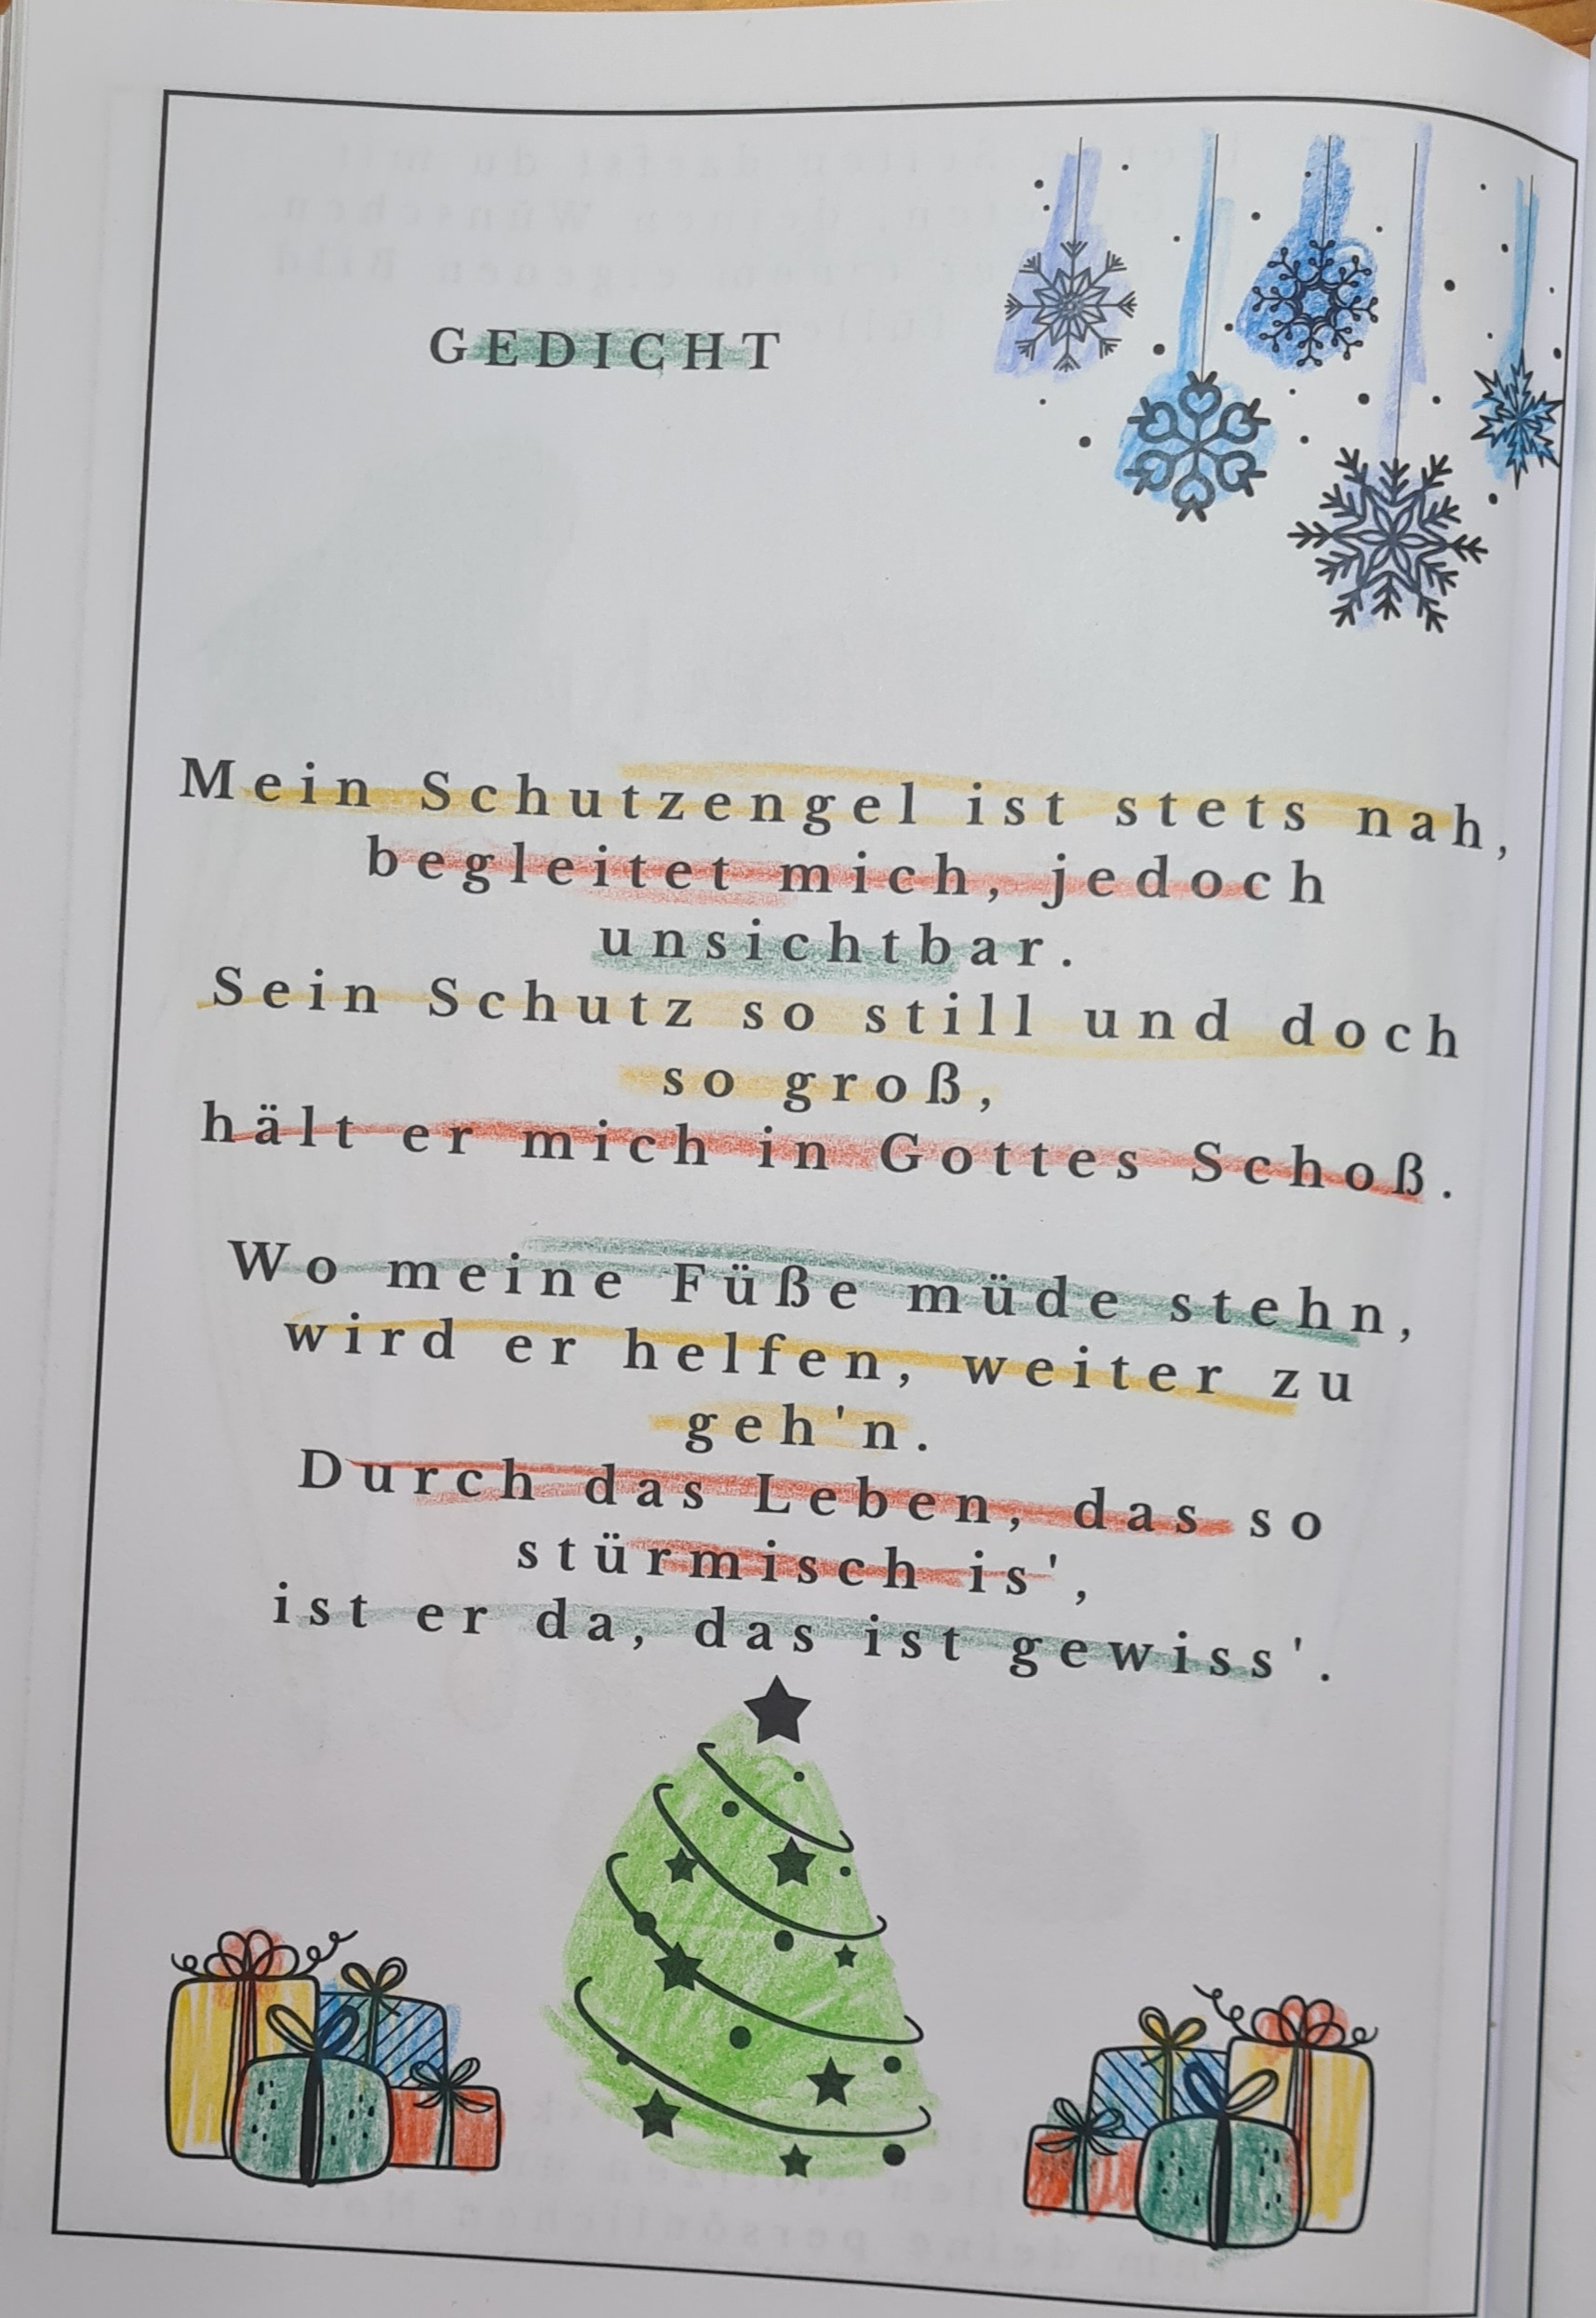 GEDICHT
Mein Schutzengel ist stets nah,
begleitet mich, jedoch
unsichtbar.
Sein Schutz so still und doch
so groß,
hält er mich in Gottes Schoß.
Wo meine Füße müde stehn,
wird er helfen, weiter zu
geh'n.
Durch das Leben, das so
stürmisch is',
ist er da, das ist gewiss'.